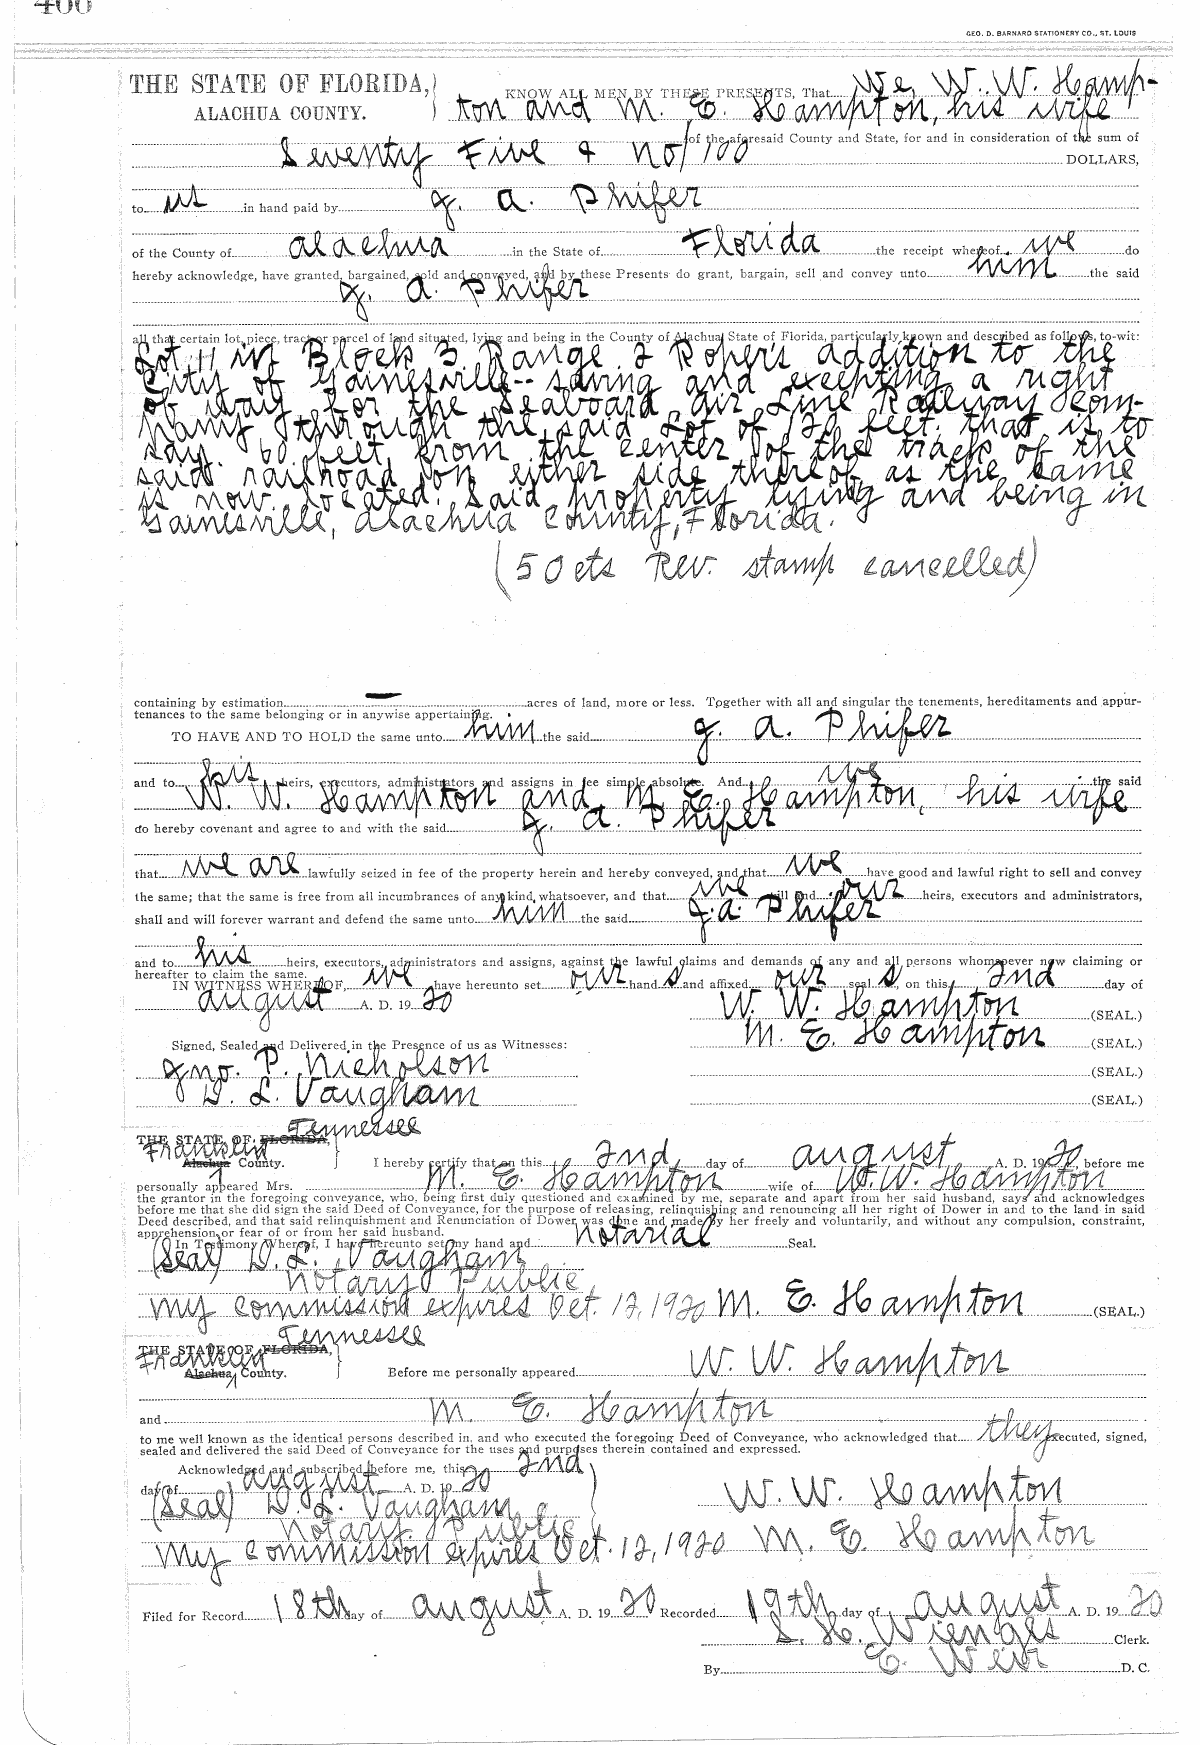 GEO. D. BARNARD STATIONERY CO., ST. LOUIS
THE STATE OF FLORIDA, KNOW ALL MEN BY THESE PRESENTS, That We, W. W. Hamp-
ALACHUA COUNTY. ton and M. E. Hampton, his wife
of the aforesaid County and State, for and in consideration of the sum of
Seventy Five & no/100 DOLLARS,
to us in hand paid by G. A. Phifer
of the County of Alachua in the State of Florida the receipt whereof we do
hereby acknowledge, have granted, bargained, sold and conveyed, and by these Presents do grant, bargain, sell and convey unto him the said
G. A. Phifer
all that certain lot, piece, tract or parcel of land situated, lying and being in the County of Alachua State of Florida, particularly known and described as follows, to-wit:
Lot 11 in Block 3 Range 2 Roper's addition to the
City of Gainesville-- saving and excepting a right
of way for the Seaboard Air Line Railway Com-
pany through the said Lot of 120 feet: that is to
say. 60 feet from the center of the track of the
said railroad on either side thereof as the same
is now located. Said property lying and being in
Gainesville, Alachua County, Florida.
(50 cts Rev. stamp cancelled)
containing by estimation — acres of land, more or less. Together with all and singular the tenements, hereditaments and appur-
tenances to the same belonging or in anywise appertaining.
TO HAVE AND TO HOLD the same unto him the said G. A. Phifer
and to his heirs, executors, administrators and assigns in fee simple absolute. And we the said
W. W. Hampton and M. E. Hampton, his wife
do hereby covenant and agree to and with the said G. A. Phifer
that we are lawfully seized in fee of the property herein and hereby conveyed, and that we have good and lawful right to sell and convey
the same; that the same is free from all incumbrances of any kind whatsoever, and that we will and our heirs, executors and administrators,
shall and will forever warrant and defend the same unto him the said G. A. Phifer
and to his heirs, executors, administrators and assigns, against the lawful claims and demands of any and all persons whomsoever now claiming or
hereafter to claim the same.
IN WITNESS WHEREOF, we have hereunto set our hand s and affixed our seal s, on this 2nd day of
August A. D. 1920 W. W. Hampton (SEAL.)
M. E. Hampton (SEAL.)
Signed, Sealed and Delivered in the Presence of us as Witnesses:
Jno. P. Nicholson (SEAL.)
D. L. Vaughan (SEAL.)
Tennessee
THE STATE OF FLORIDA,
Franklin
Alachua County. I hereby certify that on this 2nd day of August A. D. 1920, before me
personally appeared Mrs. M. E. Hampton wife of W. W. Hampton
the grantor in the foregoing conveyance, who, being first duly questioned and examined by me, separate and apart from her said husband, says and acknowledges
before me that she did sign the said Deed of Conveyance, for the purpose of releasing, relinquishing and renouncing all her right of Dower in and to the land in said
Deed described, and that said relinquishment and Renunciation of Dower was done and made by her freely and voluntarily, and without any compulsion, constraint,
apprehension or fear of or from her said husband.
In Testimony Whereof, I have hereunto set my hand and notarial Seal.
(Seal) D. L. Vaughan
Notary Public
My commission expires Oct. 12, 1920 M. E. Hampton (SEAL.)
Tennessee
THE STATE OF FLORIDA,
Franklin
Alachua County. Before me personally appeared W. W. Hampton
and M. E. Hampton
to me well known as the identical persons described in, and who executed the foregoing Deed of Conveyance, who acknowledged that they executed, signed,
sealed and delivered the said Deed of Conveyance for the uses and purposes therein contained and expressed.
Acknowledged and subscribed before me, this 2nd
day of August A. D. 1920
(Seal) D. L. Vaughan W. W. Hampton
Notary Public
My commission expires Oct. 12, 1920 M. E. Hampton
Filed for Record 18th day of August A. D. 1920 Recorded 19th day of August A. D. 1920
S. H. Wienges Clerk.
By E. Weir D. C.